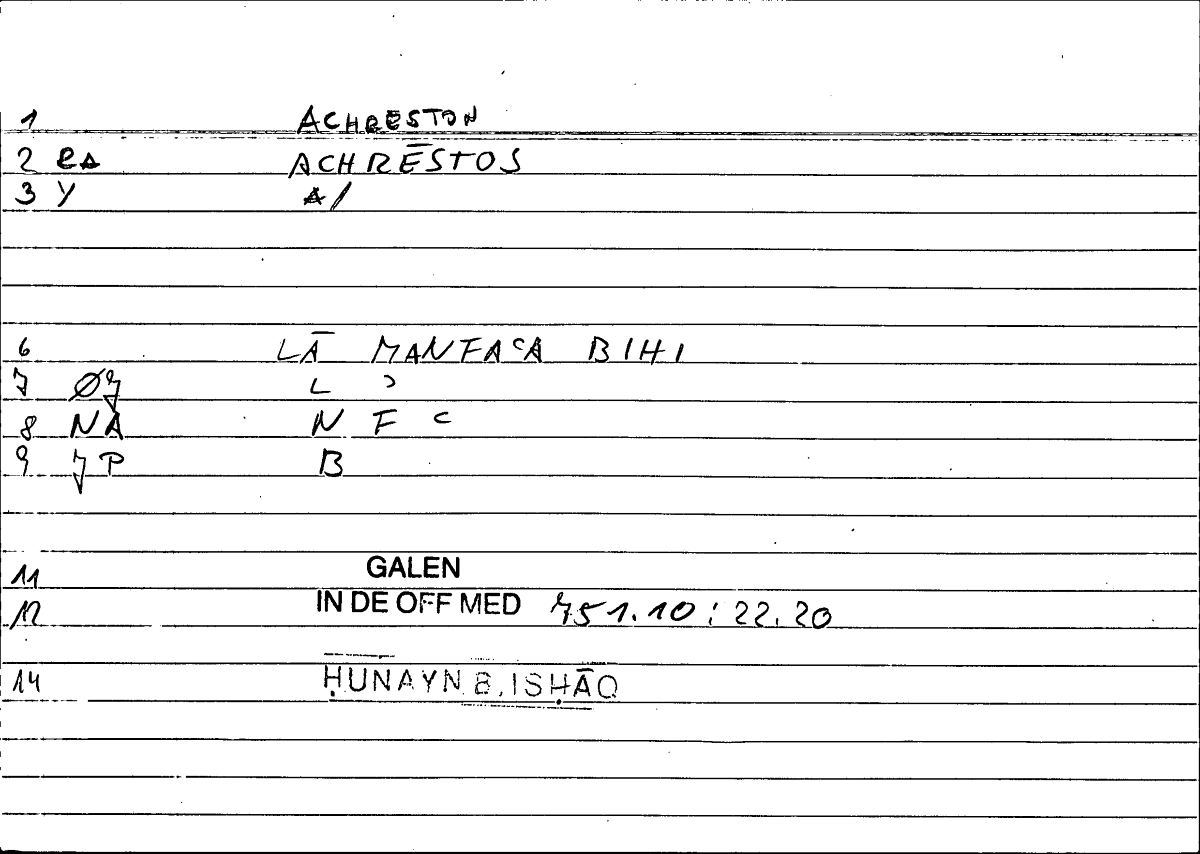 1 ACHRESTON
2 ea ACHRĒSTOS
3 Y A/
6 LĀ MANFAʿA BIHI
7 Øj L ʾ
8 NA N F ʿ
9 jP B
11 GALEN
12 IN DE OFF MED 751.10 : 22.20
14 ḤUNAYN B. ISḤĀQ